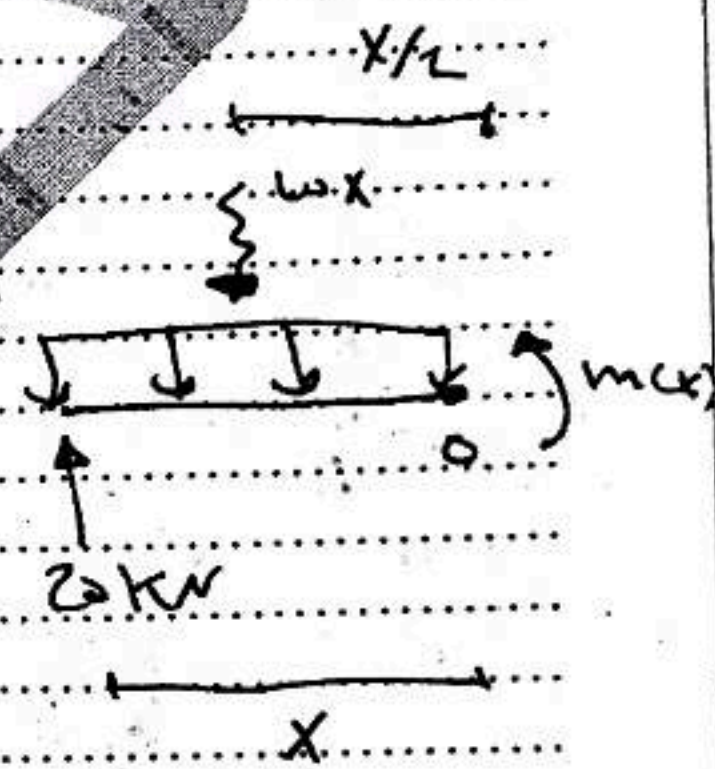 X/2
w.x
m(x)
O
20 KN
X